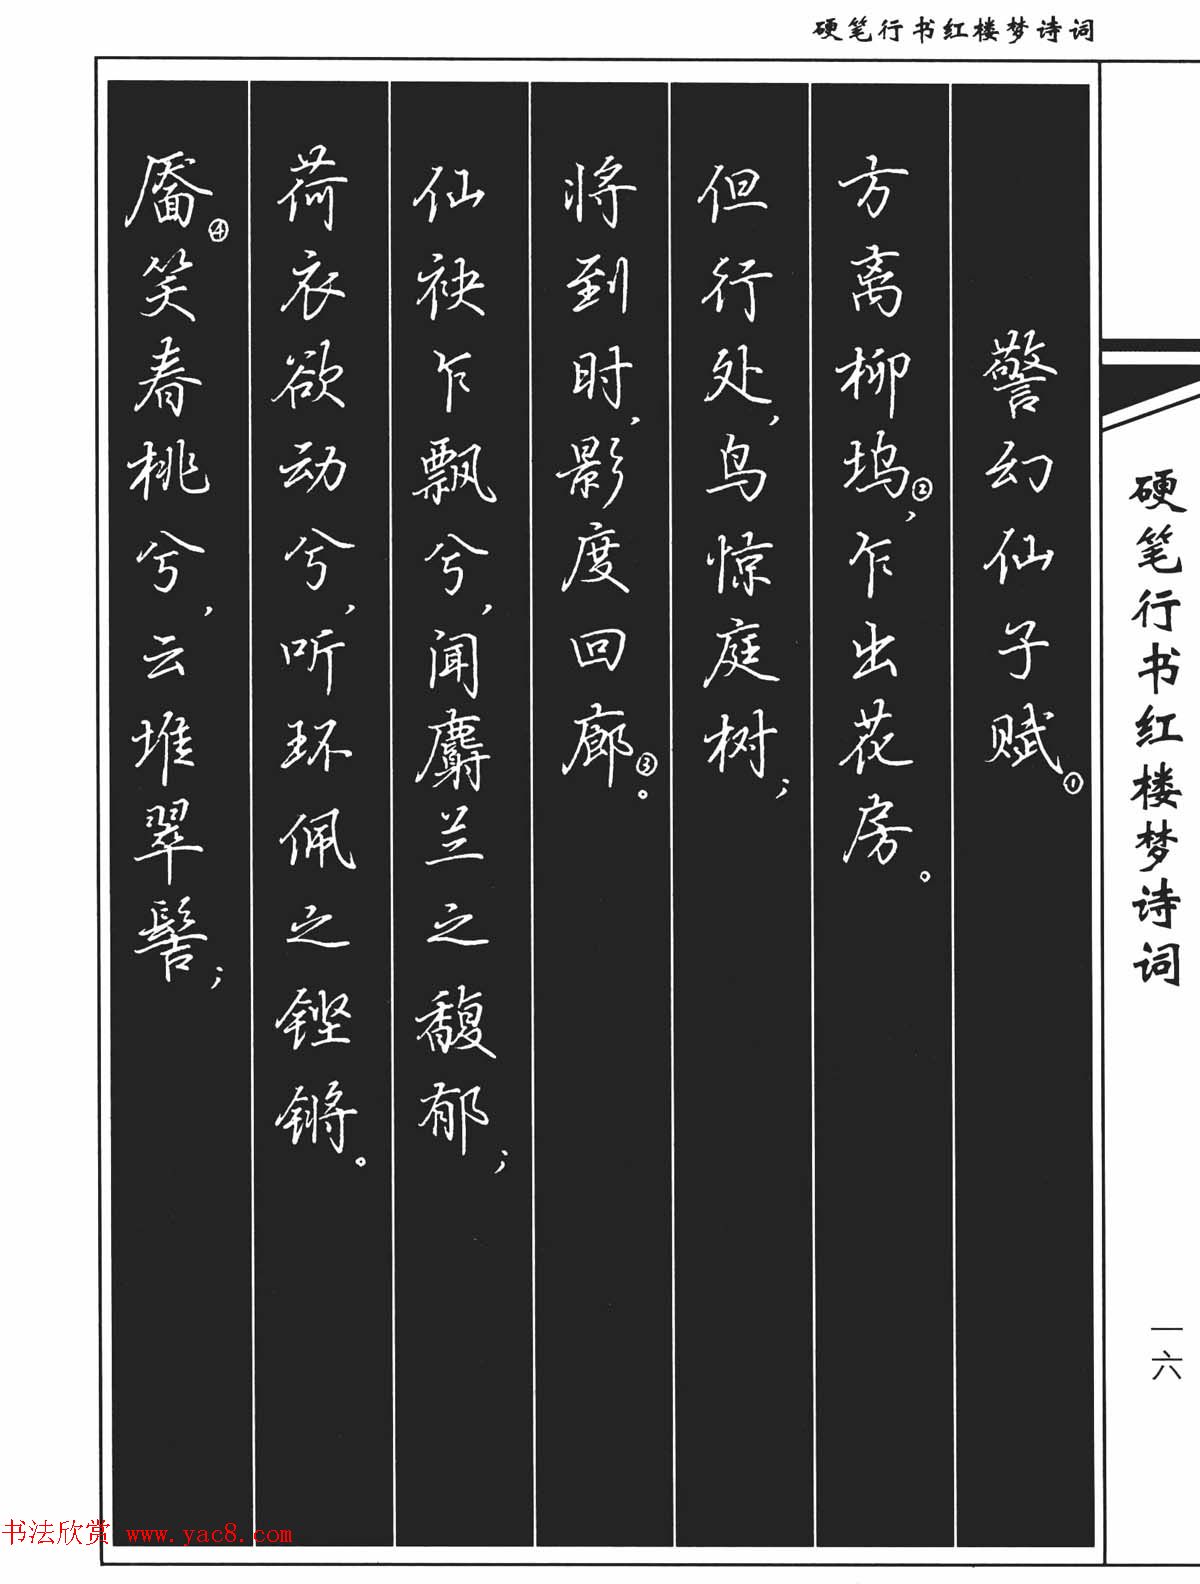 硬笔行书红楼梦诗词
警幻仙子赋①
方离柳坞②，乍出花房。
但行处，鸟惊庭树；
将到时，影度回廊③。
仙袂乍飘兮，闻麝兰之馥郁；
荷衣欲动兮，听环佩之铿锵。
靥④笑春桃兮，云堆翠髻；
硬笔行书红楼梦诗词
一六
书法欣赏 www.yac8.com